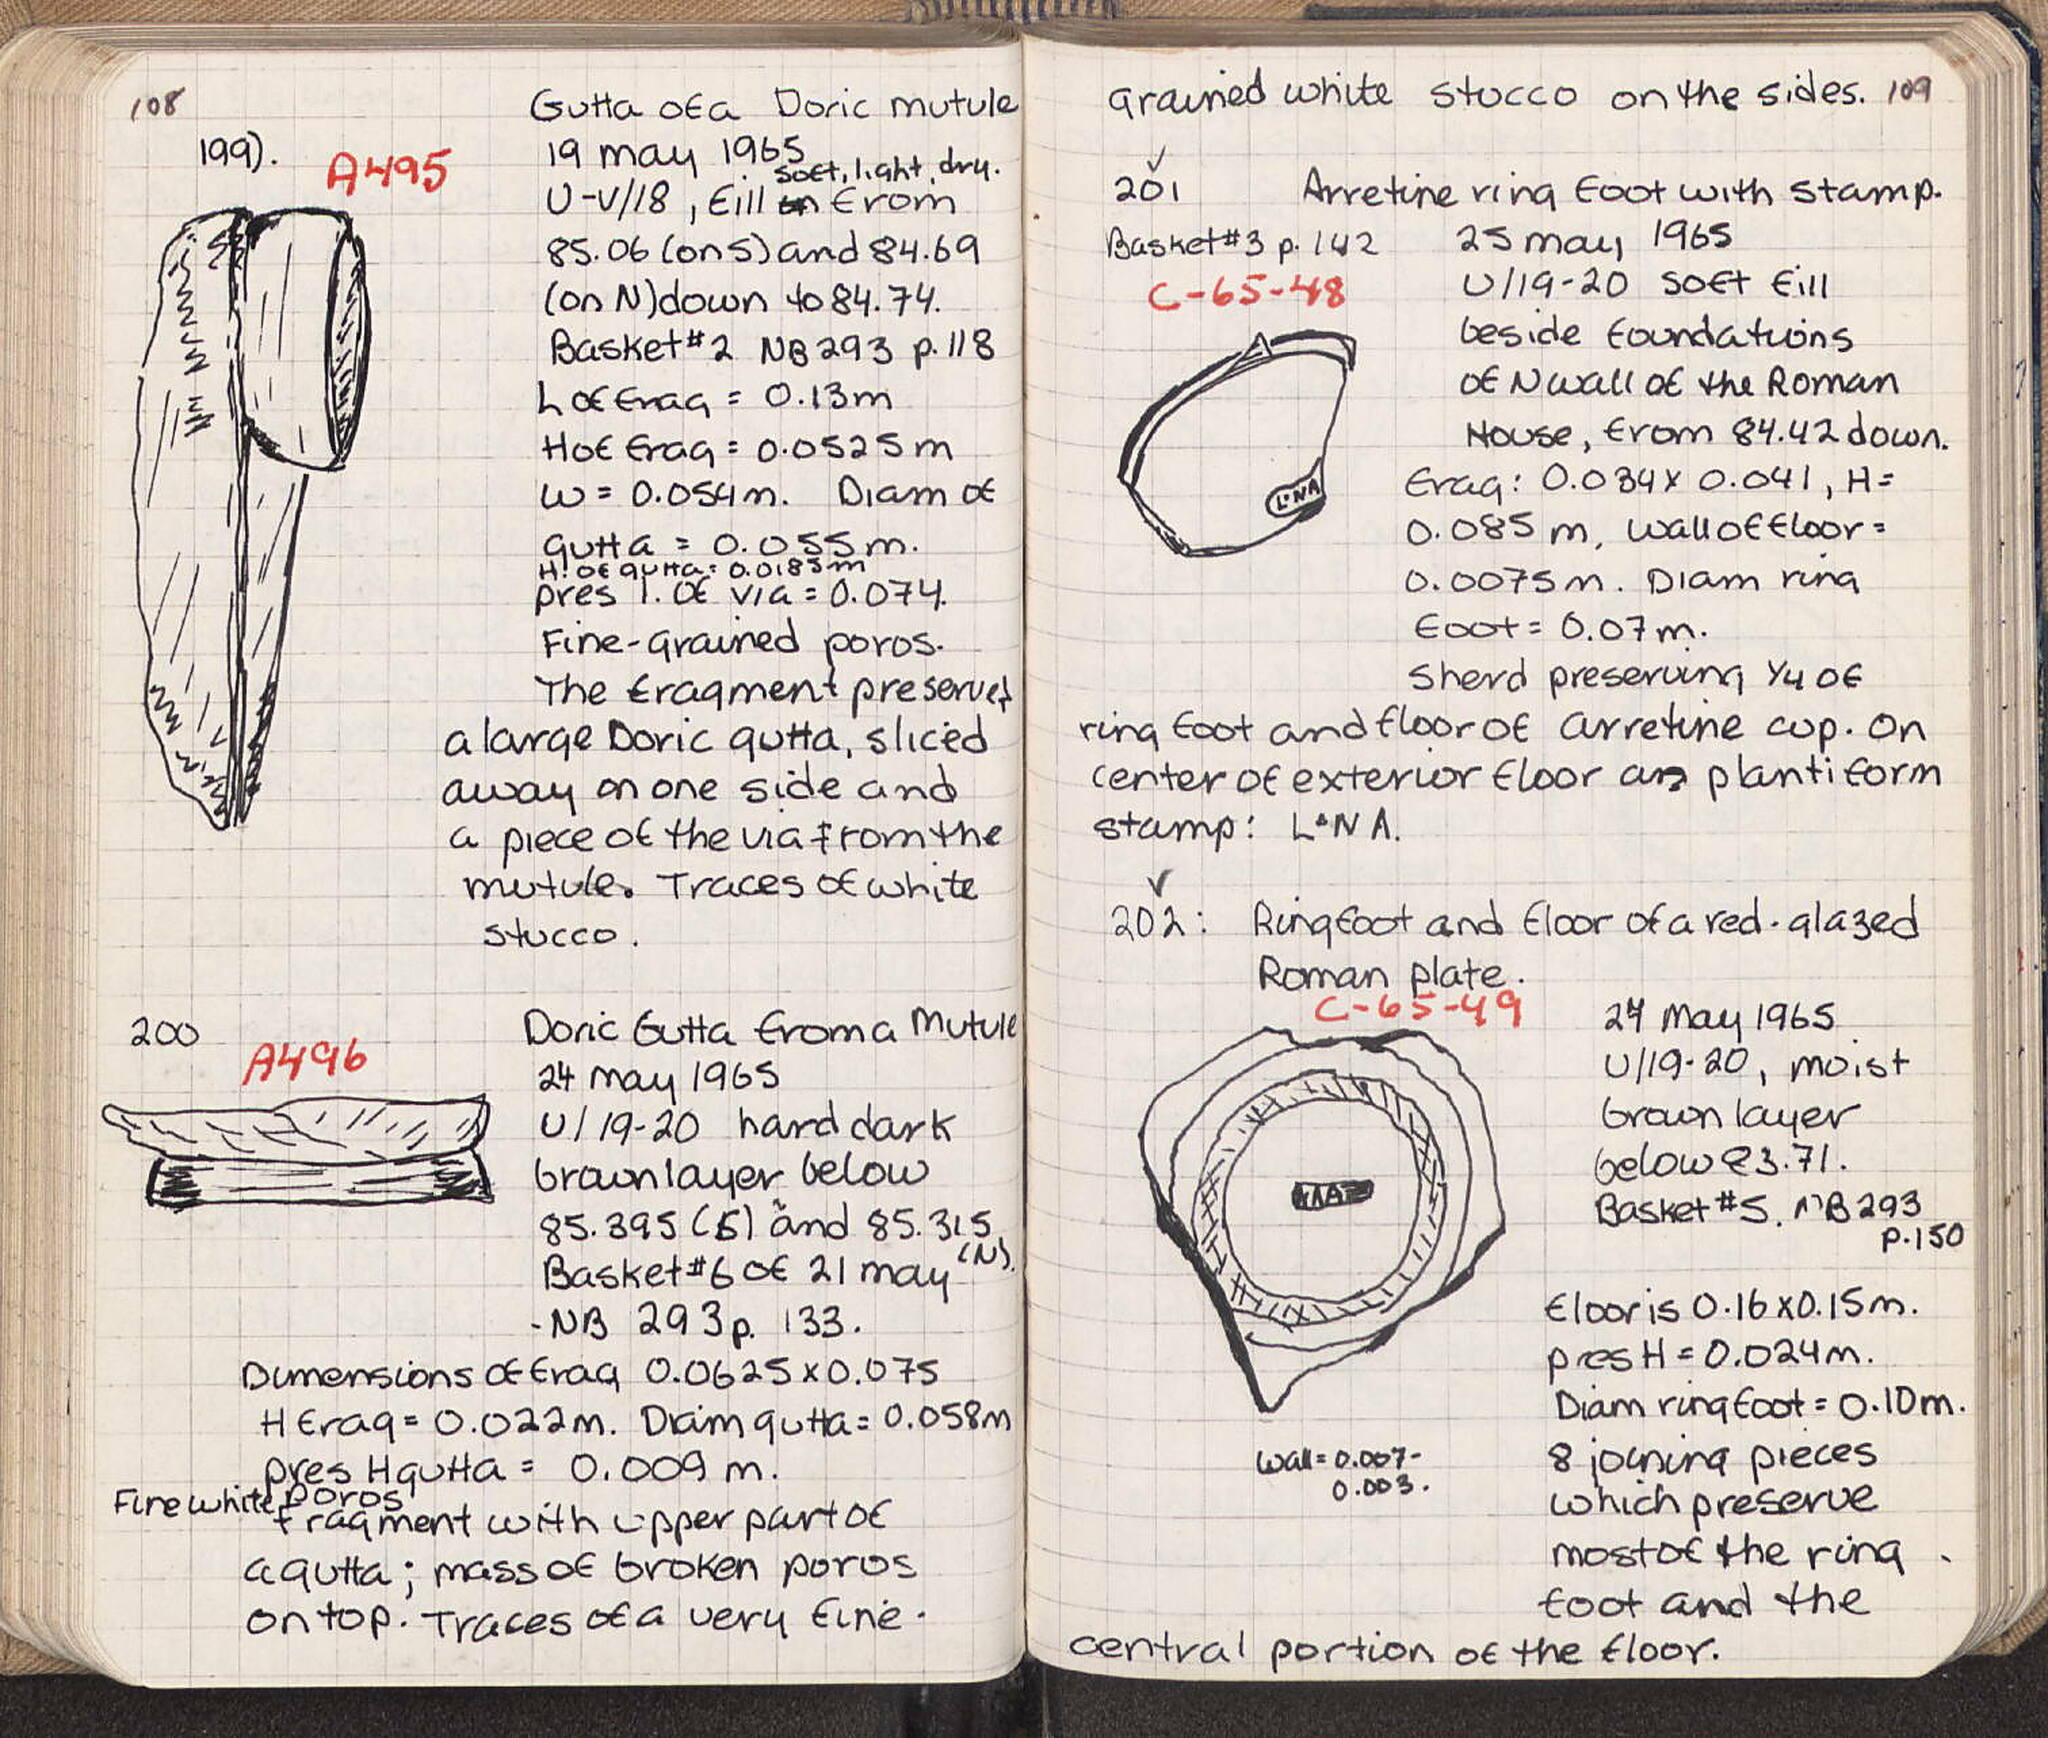 108
Gutta of a Doric mutule
199).
A495
19 may 1965
soft, light, dry.
U-V/18, fill from
85.06 (on S) and 84.69
(on N) down to 84.74.
Basket #2 NB 293 p. 118
L of frag = 0.13m
H of frag = 0.0525m
W = 0.054m. Diam of
gutta = 0.055m.
H. of gutta = 0.0185m
pres l. of via = 0.074.
Fine-grained poros.
The fragment preserves
a large Doric gutta, sliced
away on one side and
a piece of the via from the
mutule. Traces of white
stucco.
200
A496
Doric Gutta from a Mutule
24 may 1965
U/19-20 hard dark
brown layer below
85.395 (S) and 85.315
(N).
Basket #6 of 21 may
-NB 293 p. 133.
Dimensions of frag 0.0625 x 0.075
H frag = 0.022m. Diam gutta = 0.058m
pres H gutta = 0.009 m.
Fine white poros
fragment with upper part of
a gutta; mass of broken poros
on top. Traces of a very fine-
grained white stucco on the sides. 109
✓
201
Arretine ring foot with stamp.
Basket #3 p. 142
C-65-48
25 may 1965
U/19-20 soft fill
beside foundations
of N wall of the Roman
House, from 84.42 down.
L·NA
frag: 0.034 x 0.041, H=
0.085 m, wall of floor =
0.0075m. Diam ring
foot = 0.07m.
Sherd preserving 1/4 of
ring foot and floor of arretine cup. On
center of exterior floor an plantiform
stamp: L·NA.
✓
202: Ring foot and floor of a red-glazed
Roman plate.
C-65-49
May 1965
U/19-20, moist
brown layer
below 83.71.
Basket #5. NB 293
p. 150
floor is 0.16 x 0.15m.
pres H = 0.024m.
Diam ring foot = 0.10m.
Wall = 0.007-
0.003.
8 joining pieces
which preserve
most of the ring
foot and the
central portion of the floor.